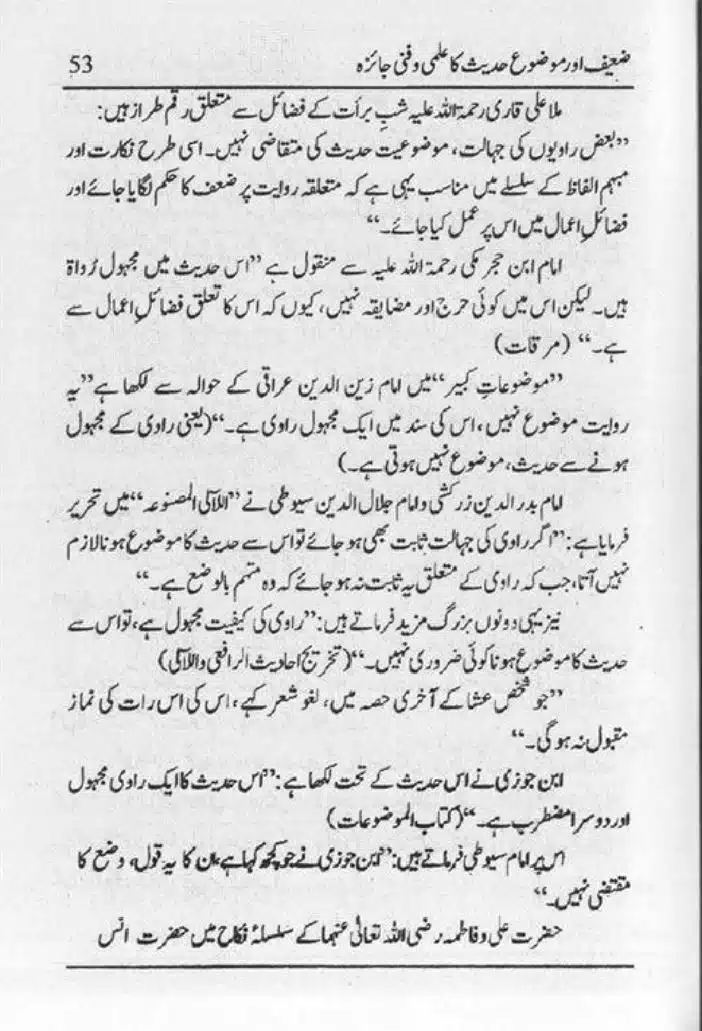 ضعیف اور موضوع حدیث کا علمی و فنی جائزہ 53
ملا علی قاری رحمۃ اللہ علیہ شبِ برأت کے فضائل سے متعلق رقم طراز ہیں:
”بعض راویوں کی جہالت، موضوعیت حدیث کی متقاضی نہیں۔ اسی طرح نکارت اور
مبہم الفاظ کے سلسلے میں مناسب یہی ہے کہ متعلقہ روایت پر ضعف کا حکم لگایا جائے اور
فضائلِ اعمال میں اس پر عمل کیا جائے۔“
امام ابن حجر مکی رحمۃ اللہ علیہ سے منقول ہے ”اس حدیث میں مجہول رُواۃ
ہیں۔ لیکن اس میں کوئی حرج اور مضایقہ نہیں، کیوں کہ اس کا تعلق فضائلِ اعمال سے
ہے۔“ (مرقات)
”موضوعاتِ کبیر“ میں امام زین الدین عراقی کے حوالہ سے لکھا ہے ”یہ
روایت موضوع نہیں، اس کی سند میں ایک مجہول راوی ہے۔“ (یعنی راوی کے مجہول
ہونے سے حدیث، موضوع نہیں ہوتی ہے۔)
امام بدر الدین زرکشی و امام جلال الدین سیوطی نے ”اللآلی المصنوعہ“ میں تحریر
فرمایا ہے: ”اگر راوی کی جہالت ثابت بھی ہو جائے تو اس سے حدیث کا موضوع ہونا لازم
نہیں آتا، جب کہ راوی کے متعلق یہ ثابت نہ ہو جائے کہ وہ متہم بالوضع ہے۔“
نیز یہی دونوں بزرگ مزید فرماتے ہیں: ”راوی کی کیفیت مجہول ہے، تو اس سے
حدیث کا موضوع ہونا کوئی ضروری نہیں۔“ (تخریج احادیث الرافعی واللآلی)
”جو شخص عشا کے آخری حصہ میں، لغو شعر کہے، اس کی اس رات کی نماز
مقبول نہ ہوگی۔“
ابن جوزی نے اس حدیث کے تحت لکھا ہے: ”اس حدیث کا ایک راوی مجہول
اور دوسرا مضطرب ہے۔“ (کتاب الموضوعات)
اس پر امام سیوطی فرماتے ہیں: ”ابن جوزی نے جو کچھ کہا ہے، ان کا یہ قول، وضع کا
مقتضی نہیں۔“
حضرت علی و فاطمہ رضی اللہ تعالیٰ عنہما کے سلسلۂ نکاح میں حضرت انس